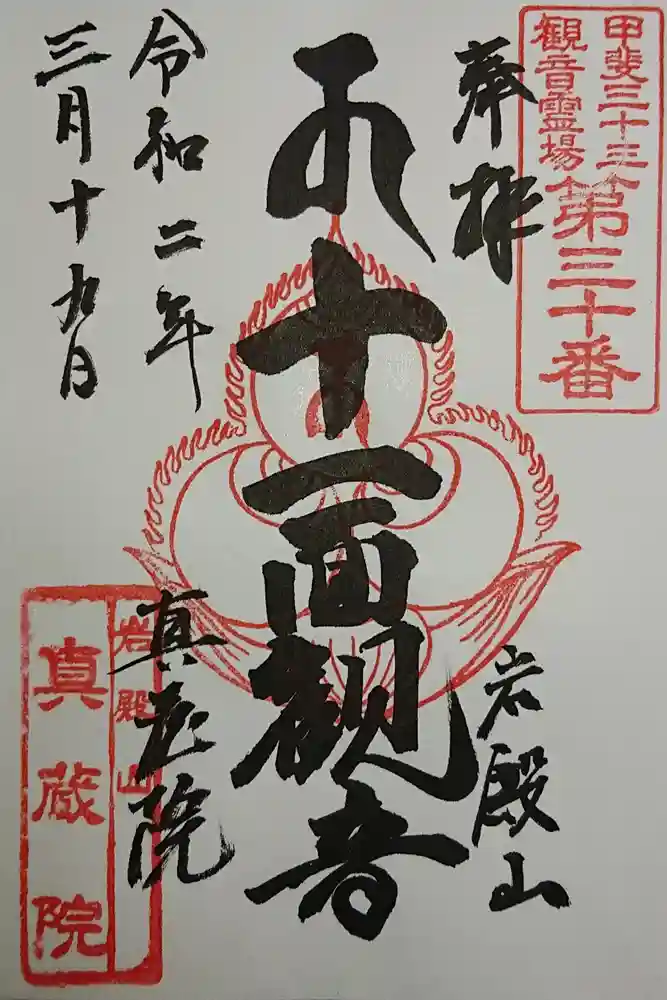 甲斐三十三
観音霊場
第三十番
奉拝
岩殿山
十一面観音
真蔵院
令和二年
三月十九日
岩殿山
真蔵院